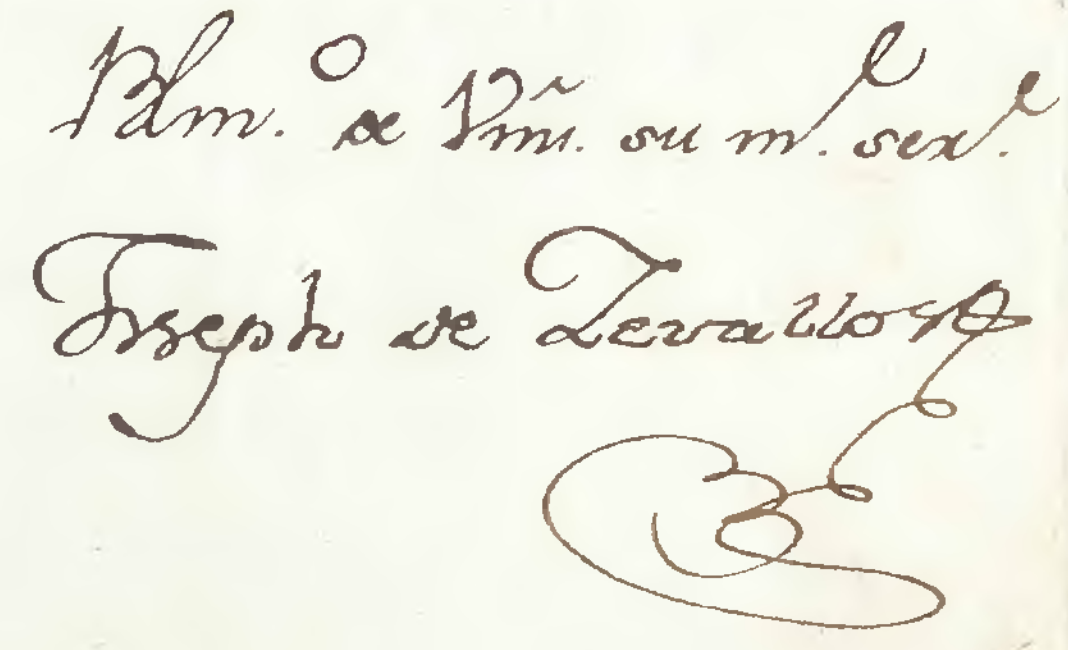 Blm.º de Vm. su m.r ser.r
Joseph de Zevallos